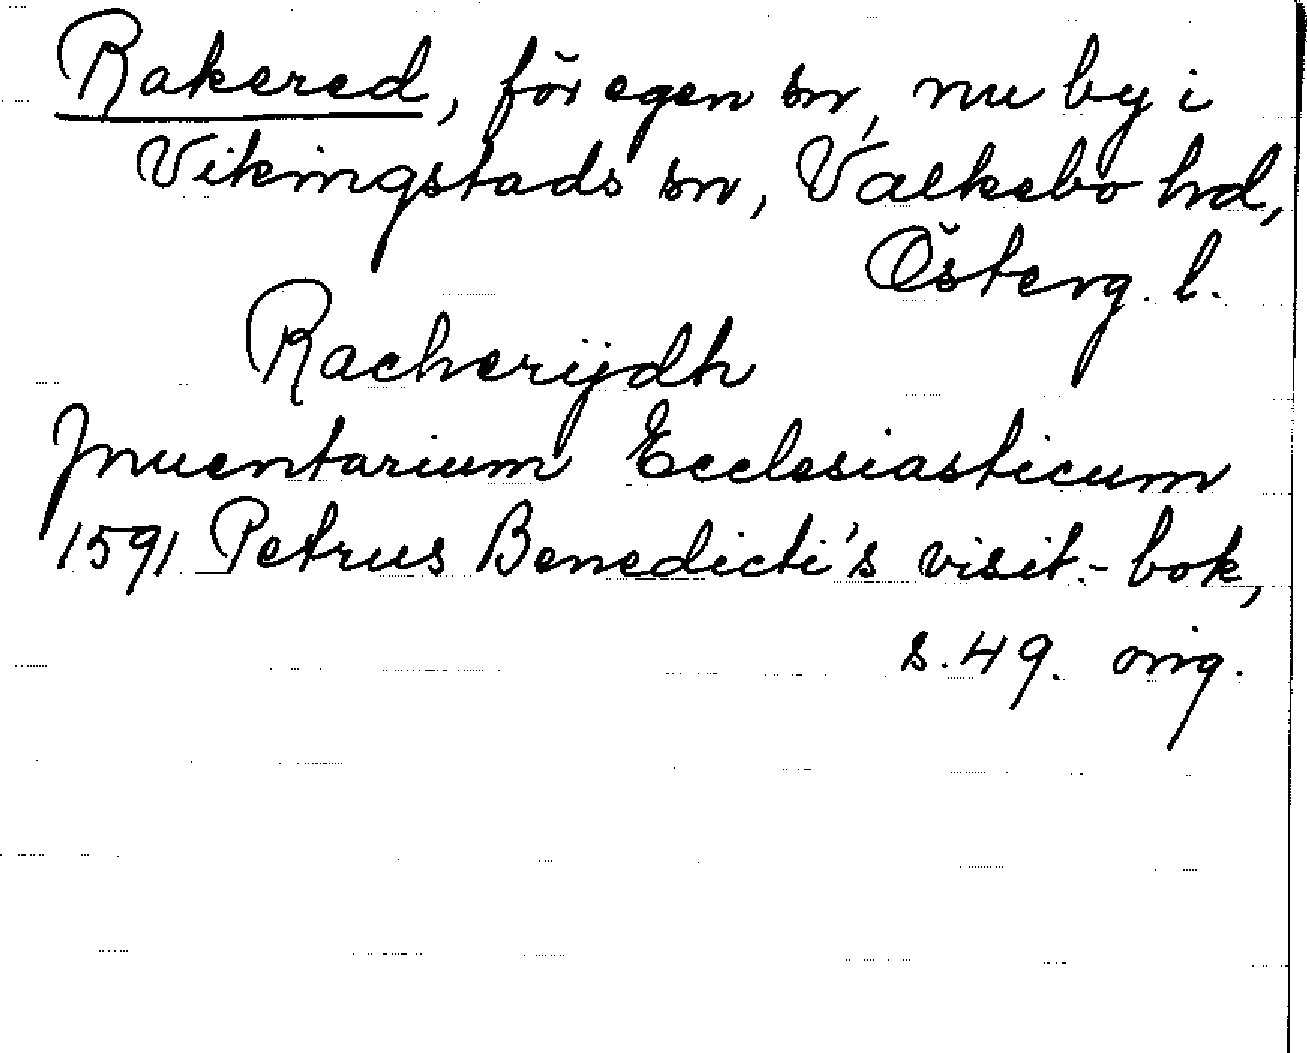 Rakered, för egen sn, nu by i
Vikingstads sn, Valkebo hrd,
Österg. l.
Racherijdh
Inuentarium Ecclesiasticum
1591 Petrus Benedicti's visit.-bok,
s. 49. orig.